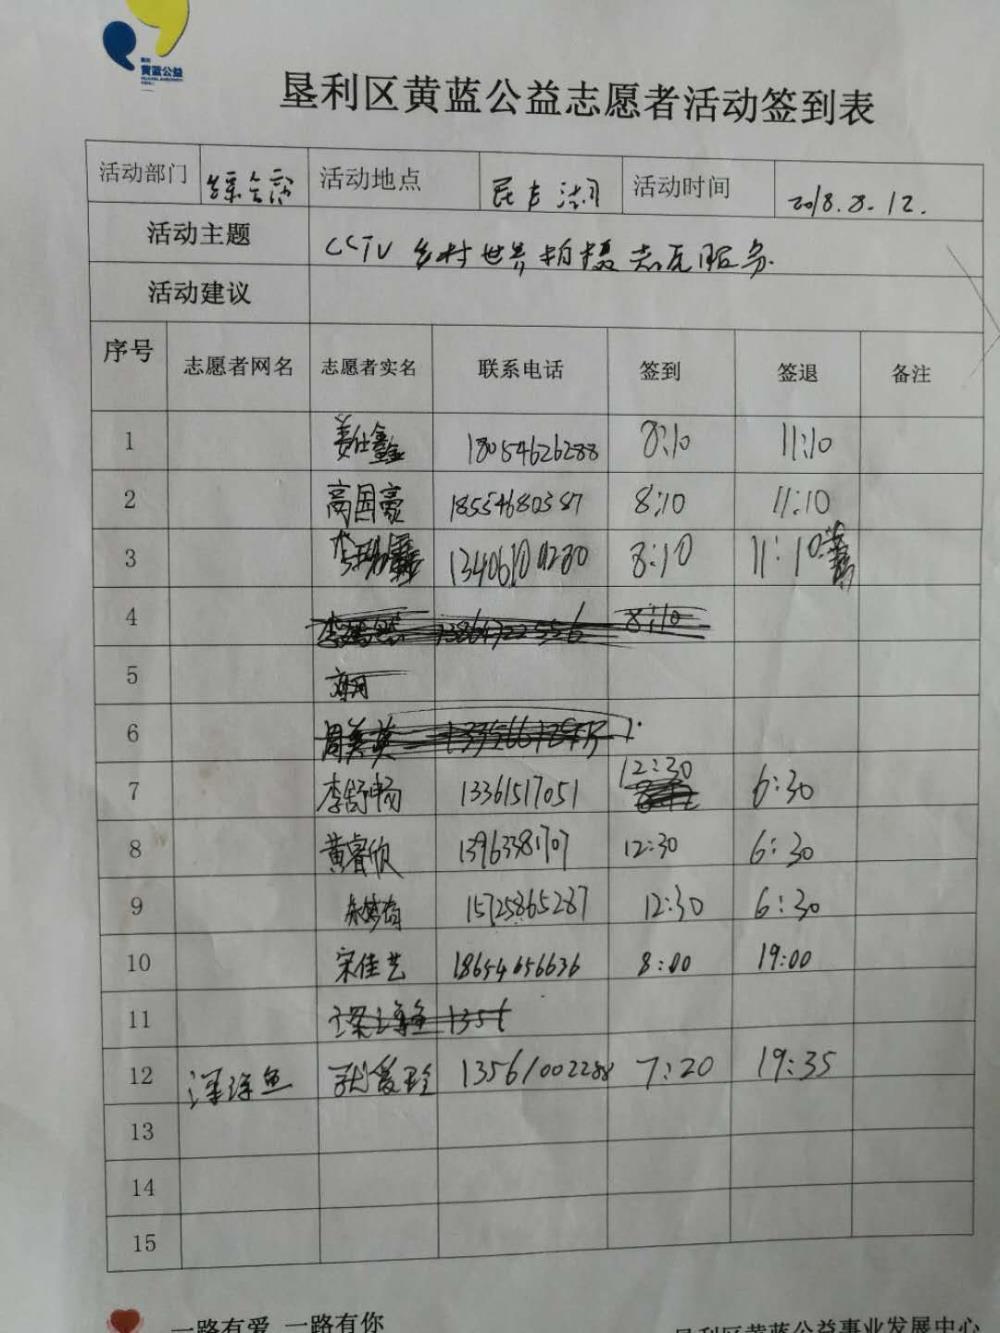 黄蓝公益
垦利区黄蓝公益志愿者活动签到表
活动部门 综合部 活动地点 民丰湖 活动时间 2018.8.12.
活动主题 CCTV 乡村世界拍摄志愿服务.
活动建议
序号 志愿者网名 志愿者实名 联系电话 签到 签退 备注
1 姜仕鑫 18054626288 8:10 11:10
2 高国豪 18554680387 8:10 11:10
3 8:10 11:10
4 8:10
5
6 周美英
7 李舒畅 13361517051 12:30 6:30
8 黄睿欣 12:30 6:30
9 15725865287 12:30 6:30
10 宋佳艺 18654656636 8:00 19:00
11 1356
12 深海鱼 13561002288 7:20 19:35
13
14
15
一路有爱 一路有你
垦利区黄蓝公益事业发展中心